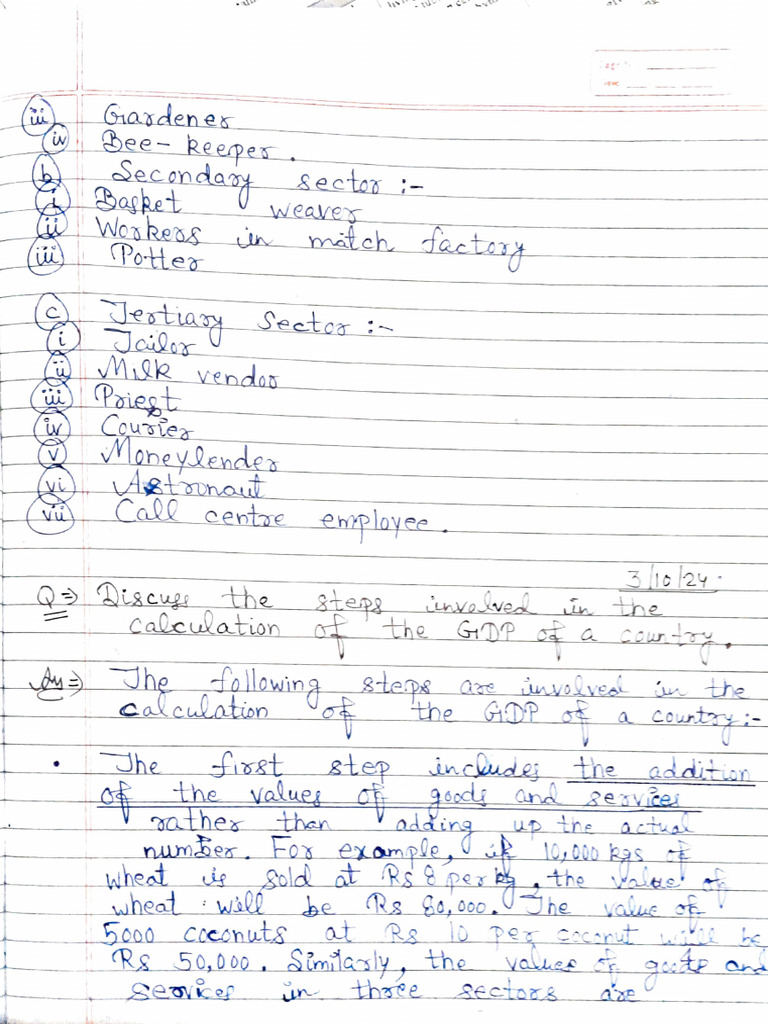 iii Gardener
iv Bee-keeper.
b Secondary sector :-
i Basket weaver
ii Workers in match factory
iii Potter
c Tertiary Sector :-
i Tailor
ii Milk vendor
iii Priest
iv Courier
v Moneylender
vi Astronaut
vii Call centre employee.
3/10/24.
Q⇒ Discuss the steps involved in the
calculation of the GDP of a country.
Ans⇒ The following steps are involved in the
calculation of the GDP of a country:-
• The first step includes the addition
of the values of goods and services
rather than adding up the actual
number. For example, if 10,000 kgs of
wheat is sold at Rs 8 per kg, the value of
wheat will be Rs 80,000. The value of
5000 coconuts at Rs 10 per coconut will be
Rs 50,000. Similarly, the values of goods and
services in three sectors are